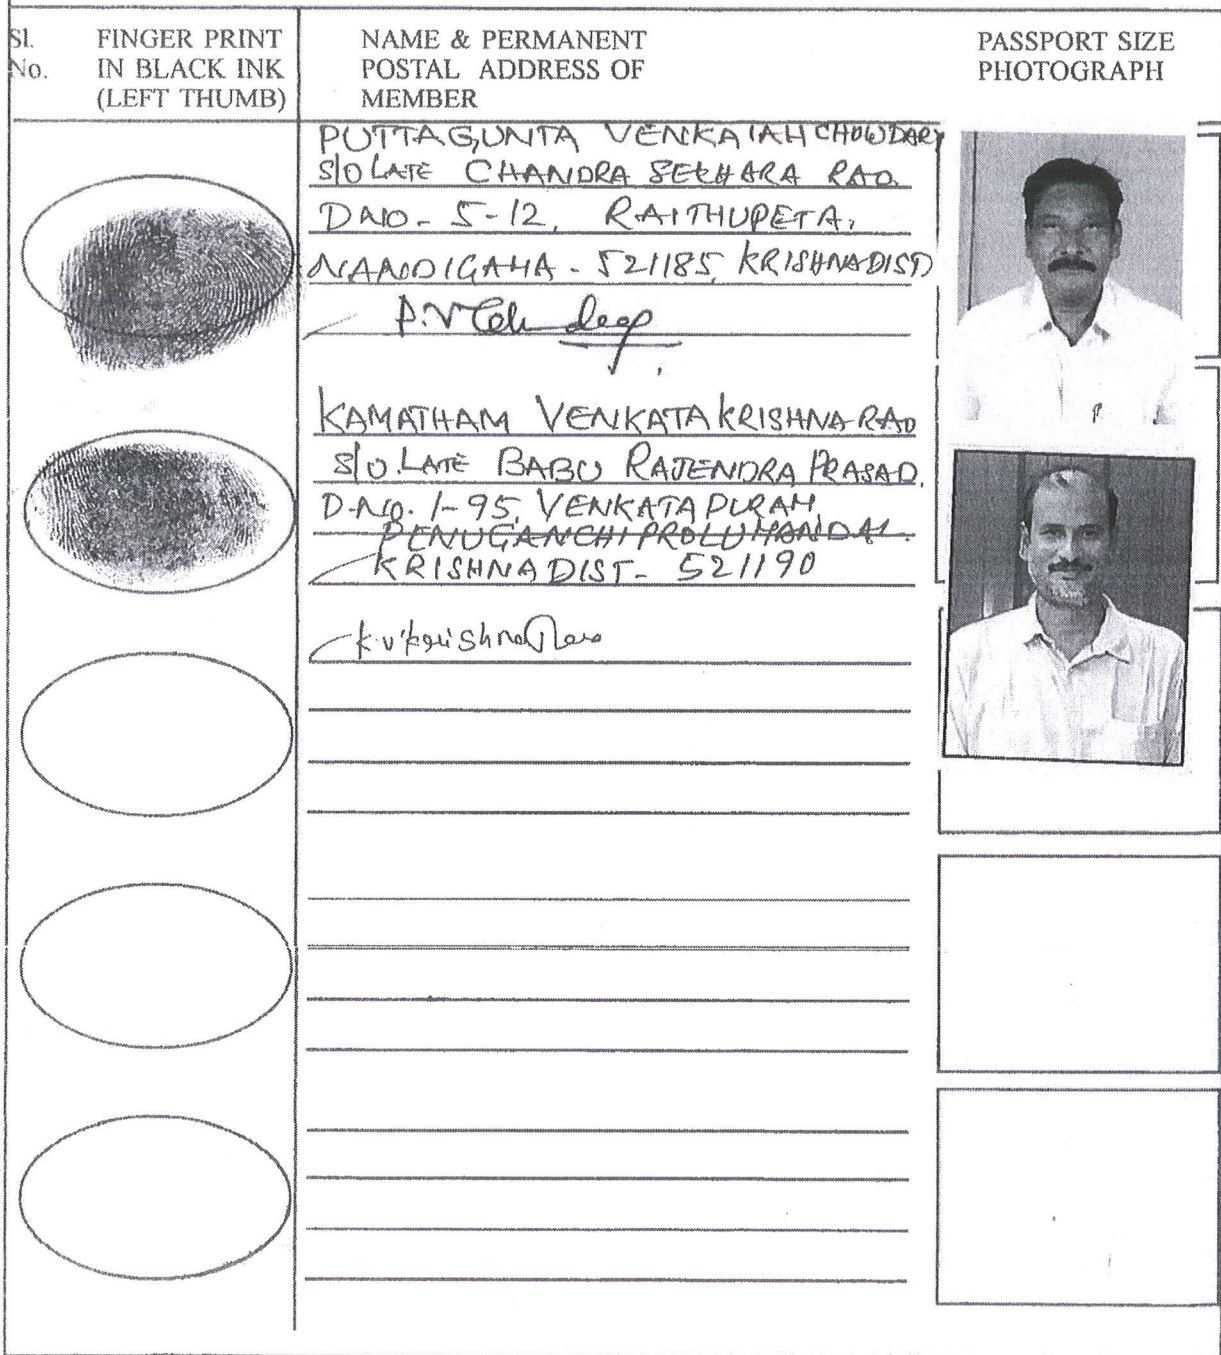 Sl. No.
FINGER PRINT IN BLACK INK (LEFT THUMB)
NAME & PERMANENT POSTAL ADDRESS OF MEMBER
PASSPORT SIZE PHOTOGRAPH
PUTTAGUNTA VENKAIAH CHOWDARY
S/O LATE CHANDRA SEKHARA RAO.
D.NO- 5-12, RAITHUPETA,
NANDIGAMA - 521185, KRISHNA DIST)
KAMATHAM VENKATA KRISHNA RAO
S/O. LATE BABU RAJENDRA PRASAD.
D.No. 1-95, VENKATAPURAM,
PENUGANCHIPROLU MANDAL.
KRISHNA DIST- 521190
K.v.krishna Rao